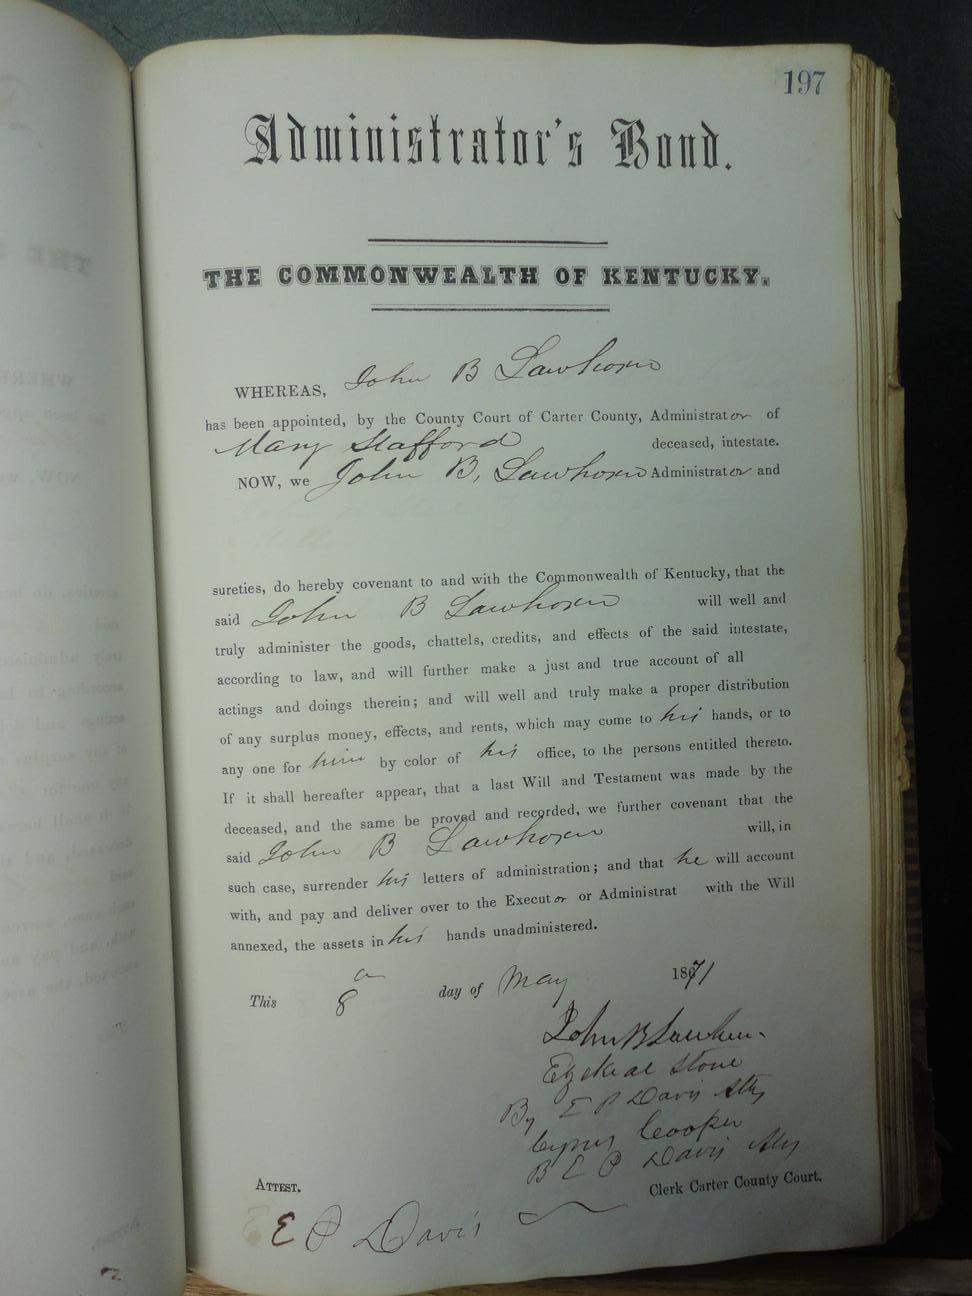 197
Administrator's Bond.
THE COMMONWEALTH OF KENTUCKY.
WHEREAS, John B Lawhorn
has been appointed, by the County Court of Carter County, Administrator of
Mary Stafford deceased, intestate.
NOW, we John B. Lawhorn Administrator and
sureties, do hereby covenant to and with the Commonwealth of Kentucky, that the
said John B Lawhorn will well and
truly administer the goods, chattels, credits, and effects of the said intestate,
according to law, and will further make a just and true account of all
actings and doings therein; and will well and truly make a proper distribution
of any surplus money, effects, and rents, which may come to his hands, or to
any one for him by color of his office, to the persons entitled thereto.
If it shall hereafter appear, that a last Will and Testament was made by the
deceased, and the same be proved and recorded, we further covenant that the
said John B Lawhorn will, in
such case, surrender his letters of administration; and that he will account
with, and pay and deliver over to the Executor or Administrat with the Will
annexed, the assets in his hands unadministered.
This 8 day of May 1871
John B Lawhorn
Ezekial Stone
By E P Davis Atty
Cyrus Cooper
B E P Davis Atty
ATTEST. Clerk Carter County Court.
E P Davis